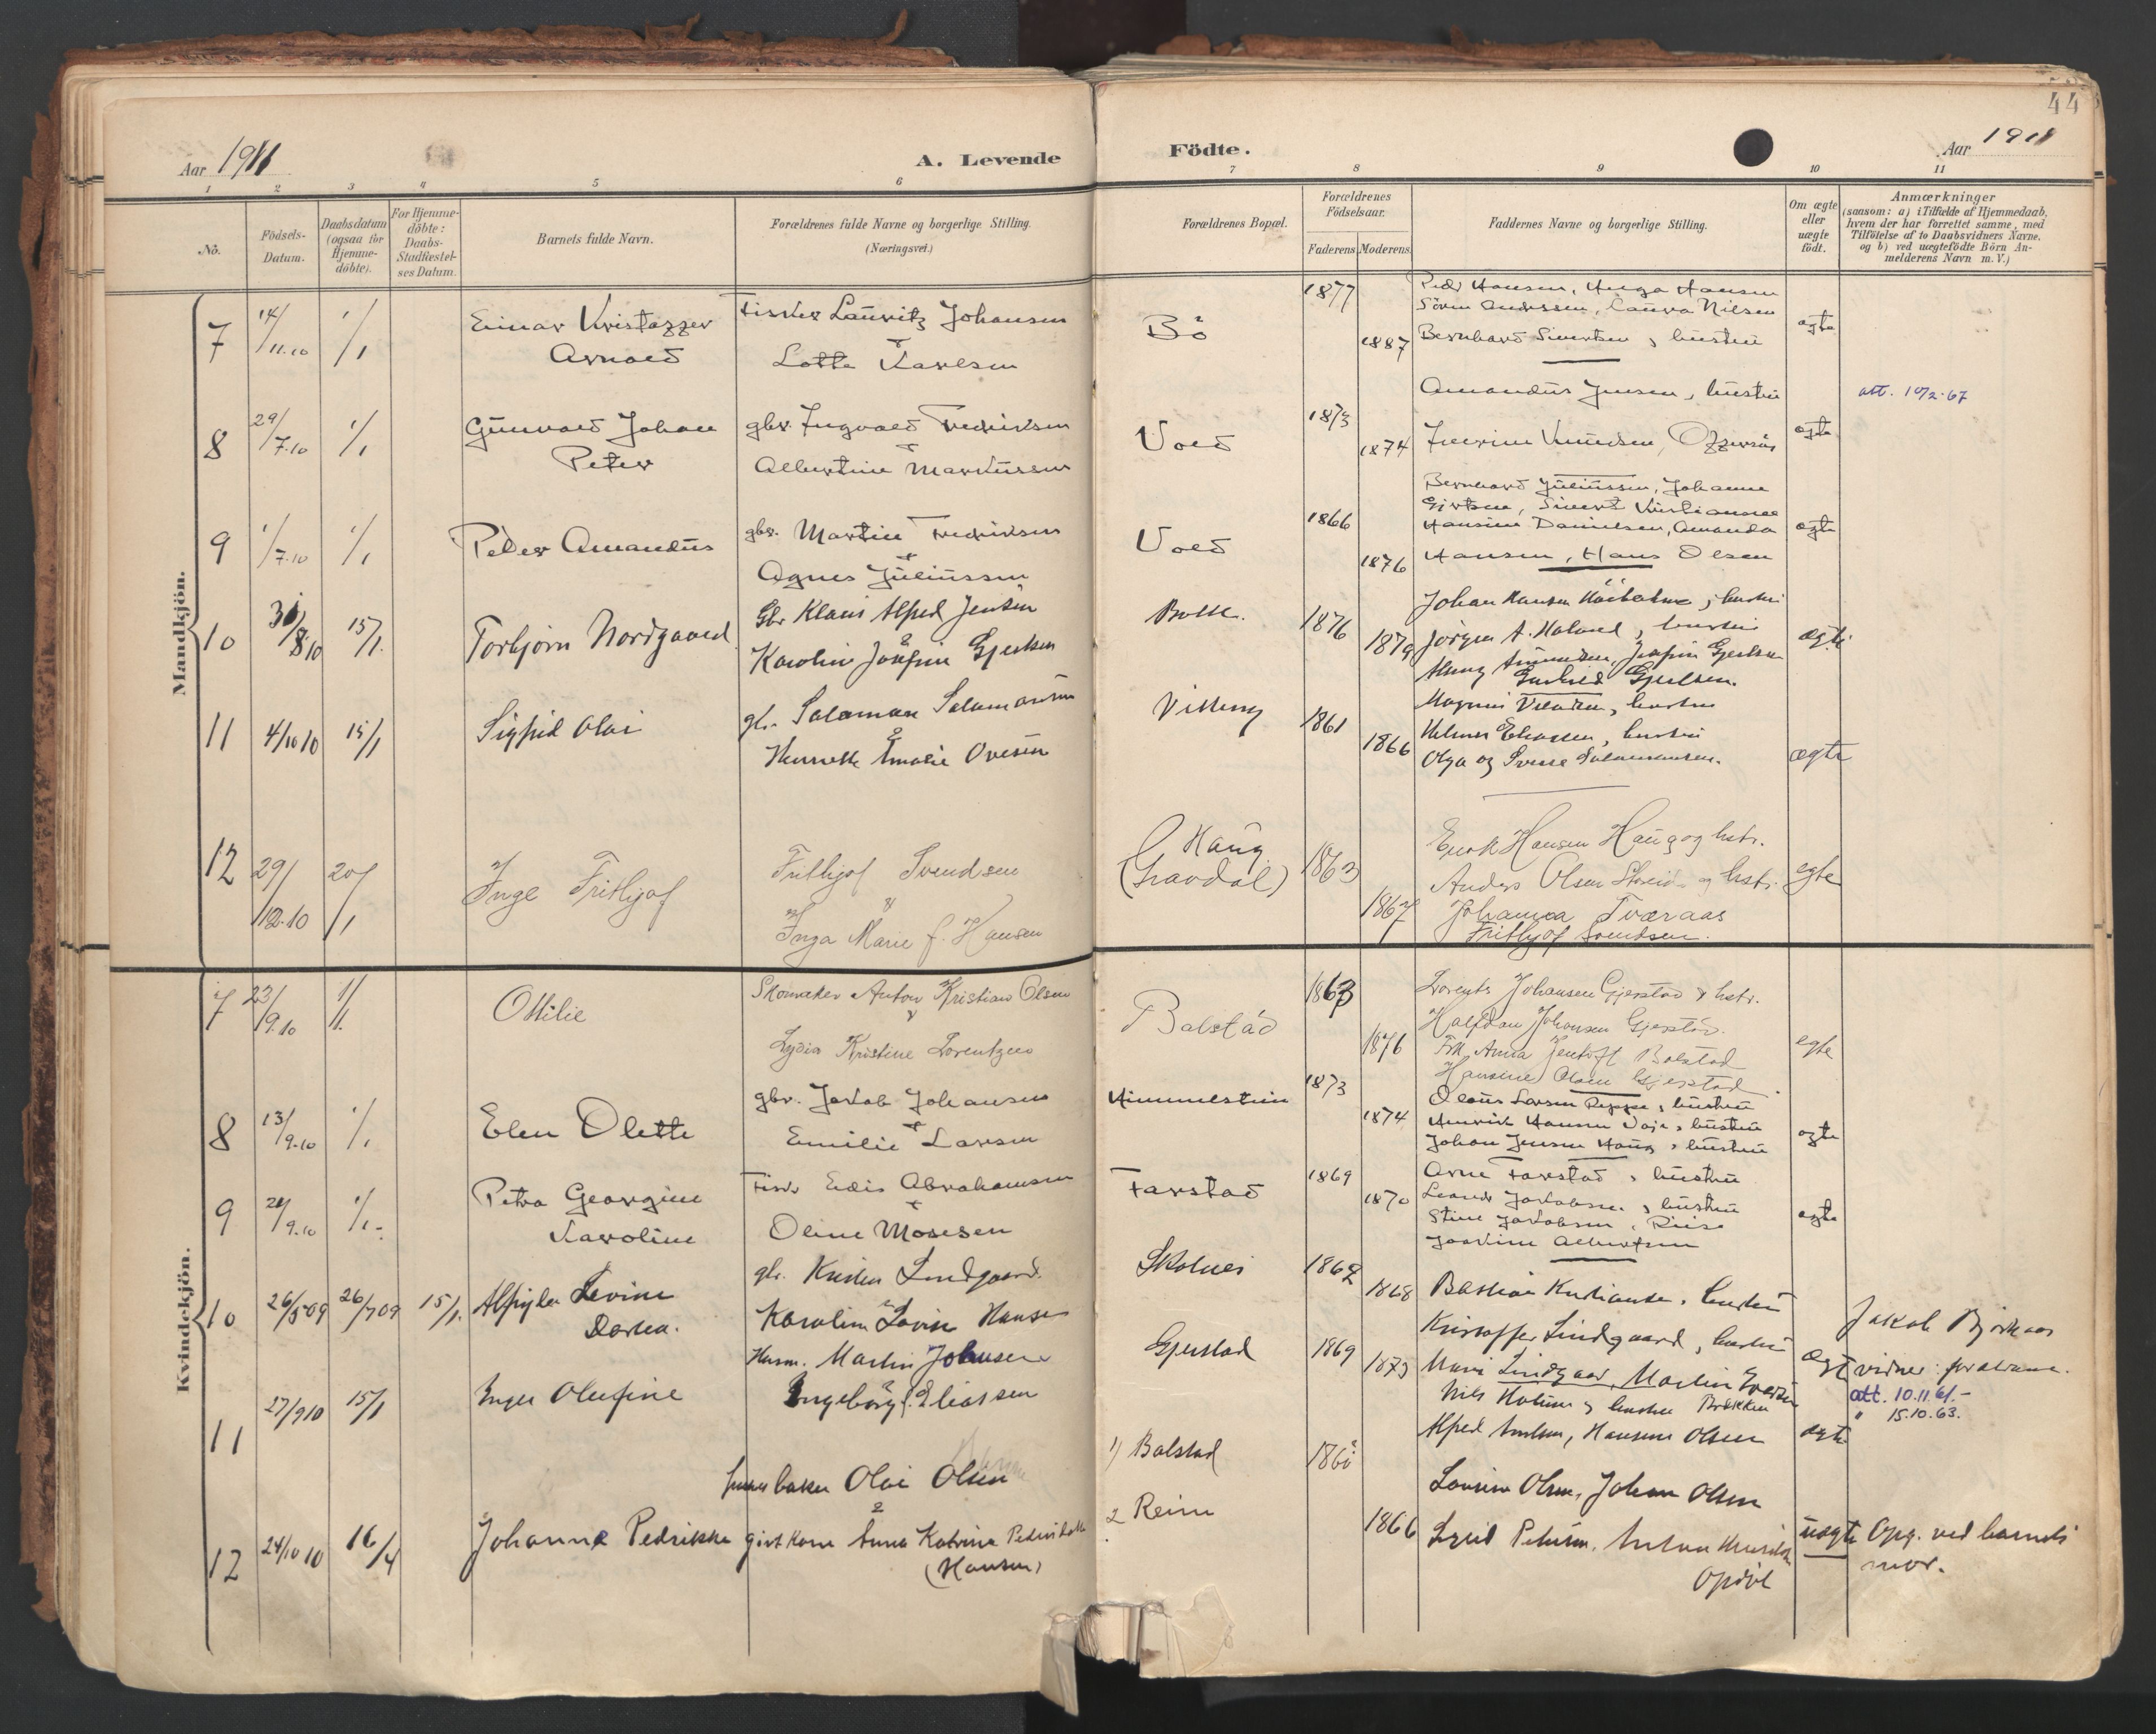 44
Aar 1911
A. Levende
Födte.
Aar 1911
1 2 3 4 5 6 7 8 9 10 11
No.
Födsels-
Datum.
Daabsdatum
(ogsaa for
Hjemme-
döbte).
For Hjemme-
döbte:
Daabs-
Stadfæstel-
ses Datum.
Barnets fulde Navn.
Forældrenes fulde Navne og borgerlige Stilling.
(Næringsvei.)
Forældrenes Bopæl.
Forældrenes
Födselsaar.
Faderens Moderens
Faddernes Navne og borgerlige Stilling.
Om ægte
eller
uægte
födt.
Anmærkninger
(saasom: a) i Tilfælde af Hjemmedaab,
hvem der har forrettet samme, med
Tilföielse af to Daabsvidners Navne,
og b) ved uægtefödte Börn An-
melderens Navn m. V.)
Mandkjön.
7 14/11.10 1/1
Einar Kristoffer
Arnold
Fisker Lauritz Johansen
+
Lotte Karlsen
Bö
1877
1887
Peder Hansen, Inga Hansen
Sören Andersen, Laura Nilsen
Bernhard Sivertsen, hustru
ægte
8 29/7.10 1/1
Gunvald Johan
Peter
gbr. Ingvald Fredriksen
+
Albertine Markussen
Vold
1873
1874
Amandus Jensen, hustru
Knudsen, Offersöy
ægte
att. 10/2.67
9 1/7.10 1/1
Peder Amandus
gbr. Martin Fredriksen
+
Agnes Juliussen
Vold
1866
1876
Bernhard Juliussen, Johanne
Gjertsen, Sivert Kristiansen
Hansine Danielsen, Amanda
Hansen, Hans Olsen
ægte
10 31/8 10 15/1.
Torbjörn Nordgaard
Gbr Klaus Alfred Jensen
Karolin Josefine Gjertsen
Bolle.
1876
1879
Johan Hansen, hustru
Jörgen A. Haland, hustru
Josefin Gjertsen
Gjertsen.
ægte
11 4/10 10 15/1
Sigfrid Olai
gbr. Salamon Salamonsen
Henrette Amalie Ovesen
1861
1866
Magnus, hustru
Helmer Eliassen, hustru
Olga og Sverre Salamonsen.
ægte
12 29/12.10 20/1
Inge Frithjof
Frithjof Svendsen
&
Inga Marie f. Hansen
Haug
(Gravdal)
1863
1867
Enok Hansen Haug og hstr.
Anders Olsen og hstr.
Johanna Tværaas
Frithjof Svendsen.
egte
Kvindekjön.
7 23/9.10 1/1.
Ottilie
Skomaker Anton Kristian Olsen
&
Lydia Kristine Lorentzen
Balstad
1863
1876
Lorents Johansen Gjerstad & hstr.
Halfdan Johansen Gjerstad.
Frk. Anna Jentoft Balstad
Hansine Olsen Gjerstad.
egte
8 13/9.10 1/1
Elen Olette
gbr. Jakob Johansen
+
Emilie Larsen
Himmelstein
1873
1874
Olaus Larsen Reppe, hustru
Henrik Hansen Voje, hustru
Johan Jensen Haug, hustru
ægte
9 28/9.10 1/1.
Petra Georgine
Karoline
Fisk. Edis Abrahamsen
+
Oline Mosesen
Farstad
1869
1870
Arne Farstad, hustru
Leonr Jakobsen, hustru
Stine Jakobsen, Riise
Joakine Albertsen
ægte
10 26/5 09 26/7 09 15/1.
Levine
Dortea.
gbr. Kristen Lindgaard.
Karoline Lovise Hansen
Skolnes
1862
1868
Bastian Kristiansen, hustru
Kristoffer Lindgaard, hustru
Marie Lindgaard, Martin
ægte
Jakob Björkaas
vidner: forældrene.
11 27/9 10 15/1
Inger Olufine
Husm. Martin Johnsen
Ingeborg f. Eliassen
Gjerstad
1869
1873
Nils Holum, hustru Brækken
Alfred, Hansine Olsen
ægte
att. 10.11.61.-
" 15.10.63.
12 24/10 10 16/4
Johanna Pedrikke
Olai Olsen
gift kone Anna Katrina
(Hansen)
1) Balstad
2 Reine
1866
Lovise Olsen, Johan Olsen
Petersen, Anton
Opdöl
uægte
Opg. ved barnets
mor.